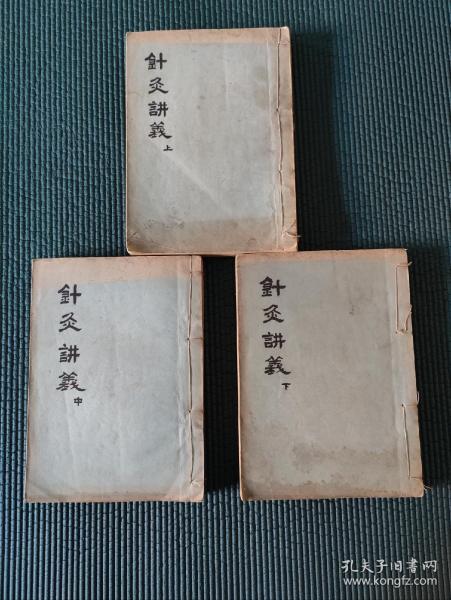 針灸講義
上
針灸講義
中
針灸講義
下
孔夫子旧书网
www.kongfz.com